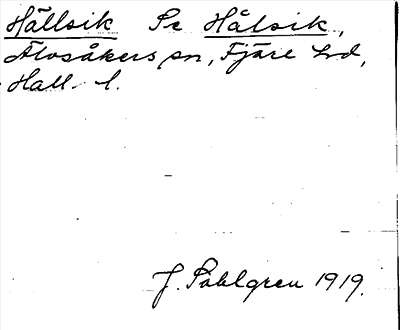 Hällsik Se Hålsik,
Älvsåkers sn, Fjäre hd,
Hall. l.
J. Sahlgren 1919.